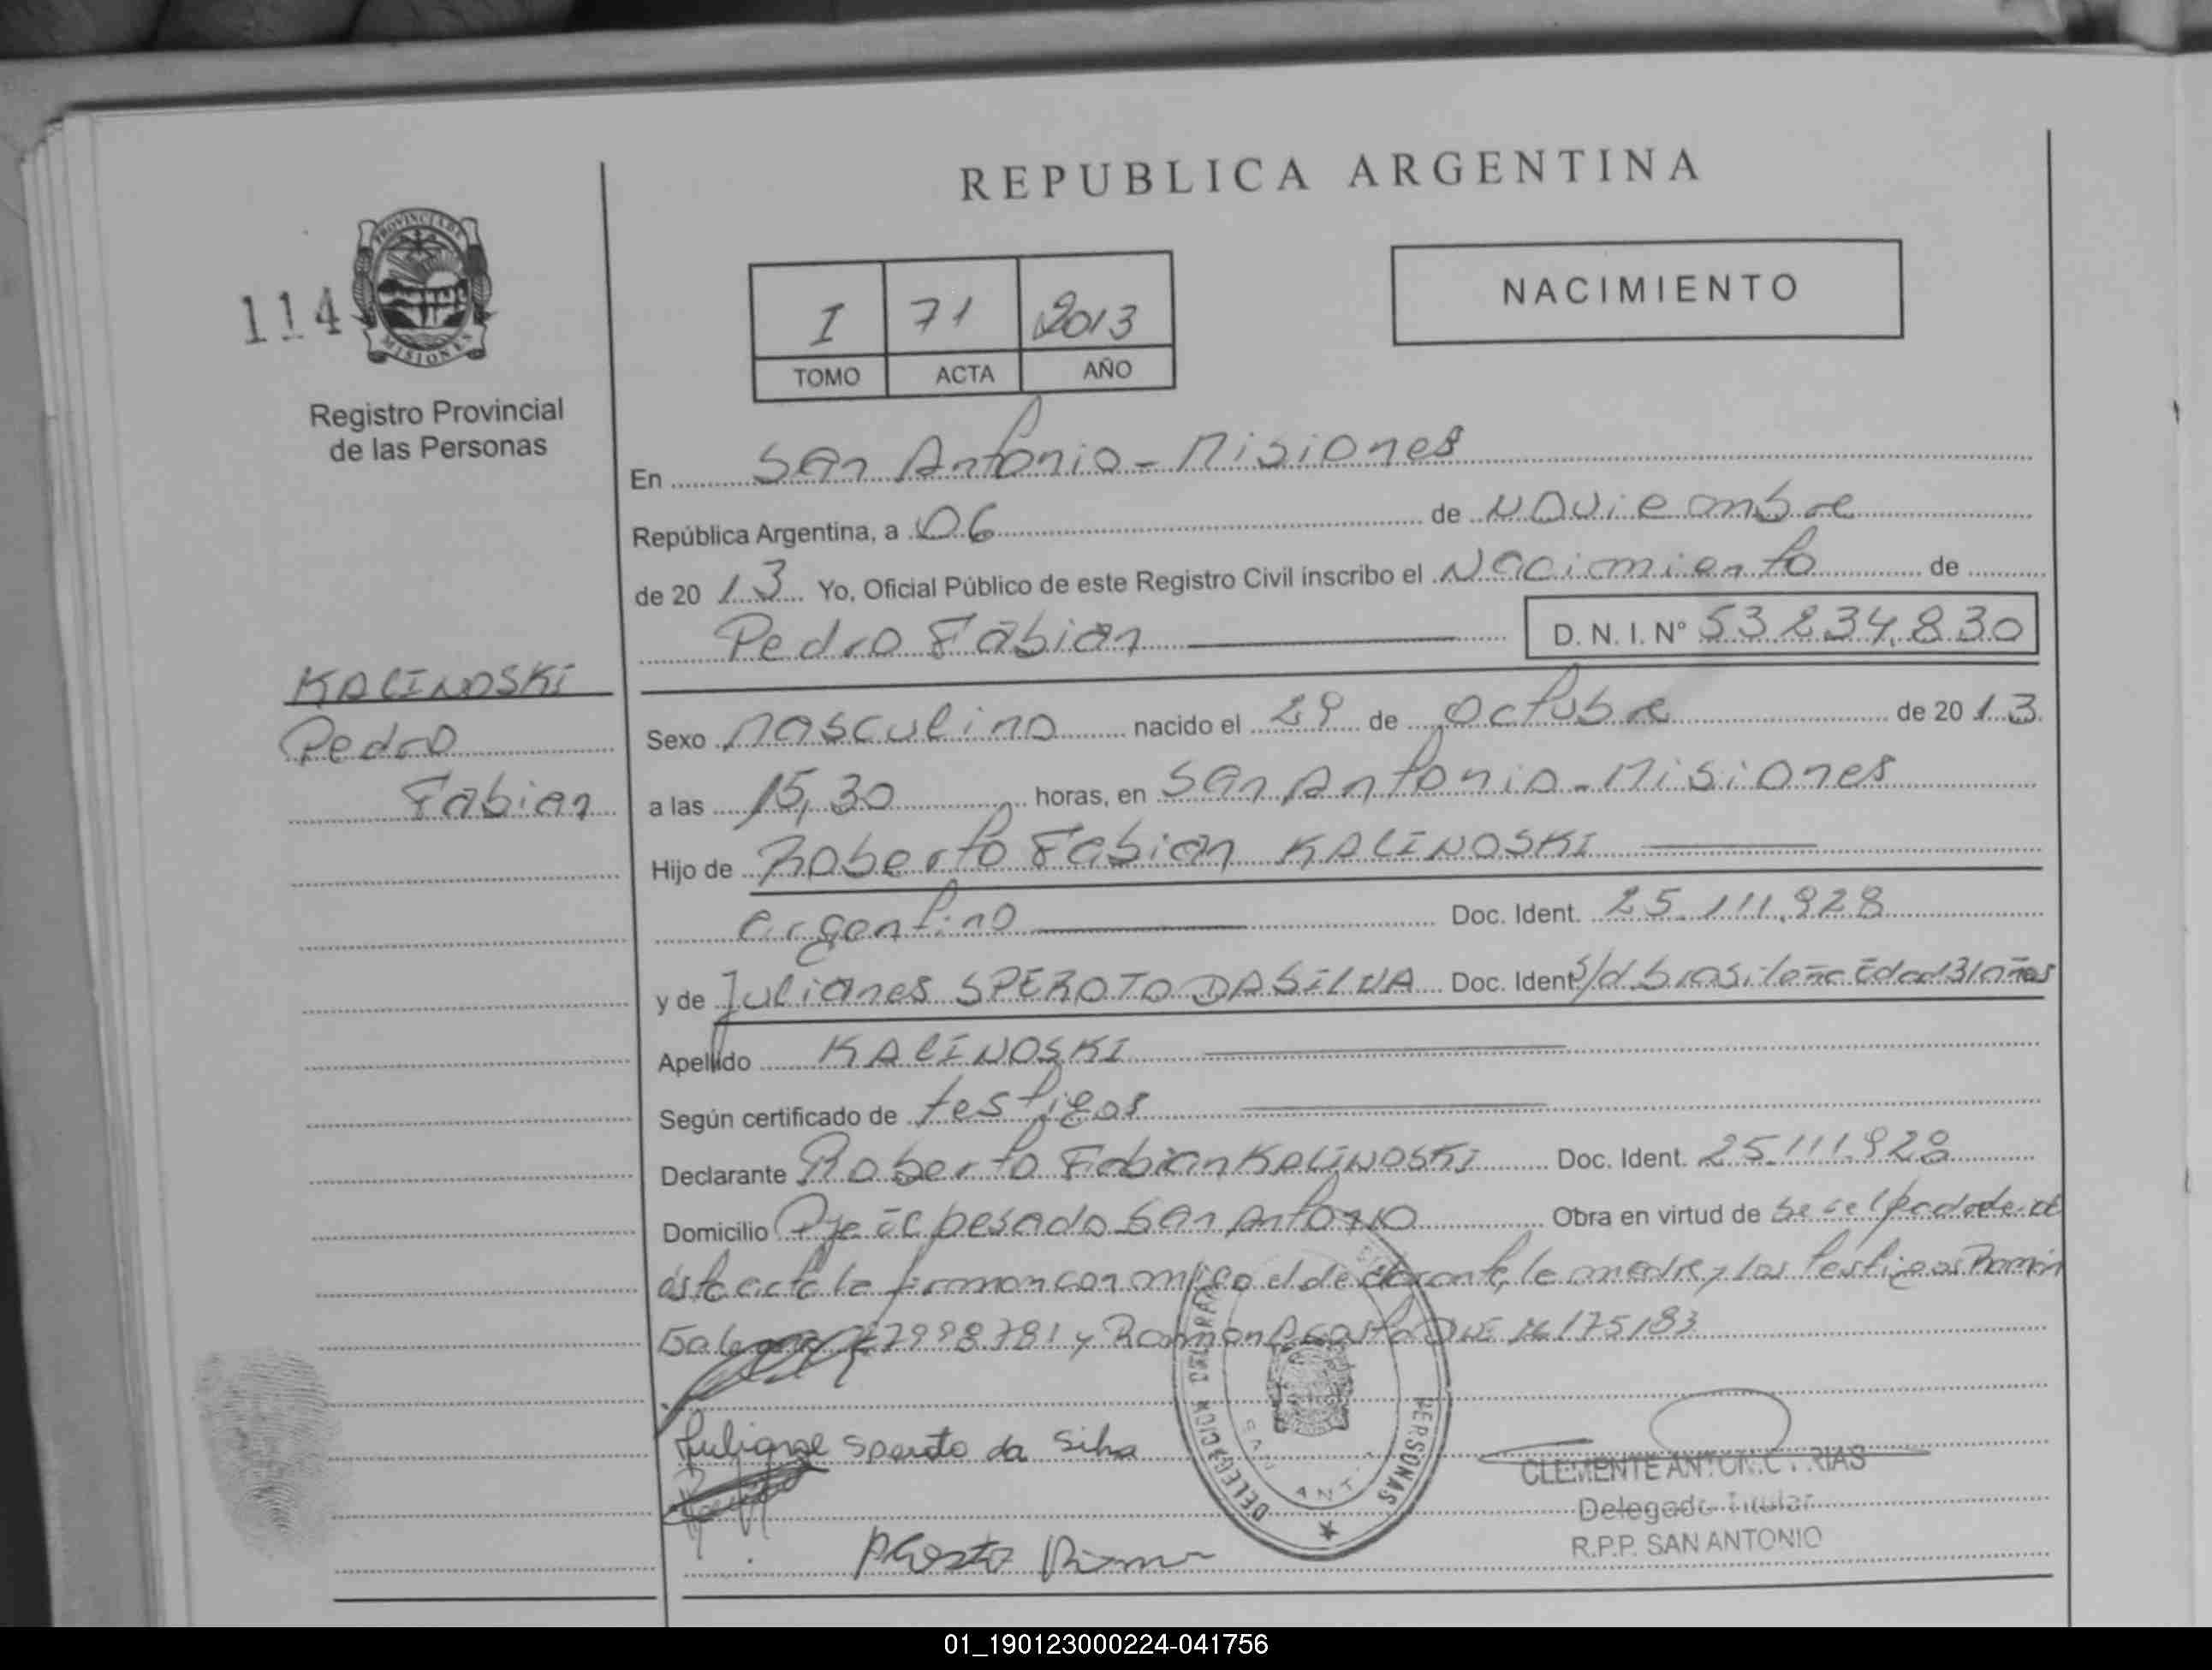 REPUBLICA ARGENTINA
PROVINCIA DE
MISIONES
114
Registro Provincial
de las Personas
I 71 2013
TOMO ACTA AÑO
NACIMIENTO
En San Antonio - Misiones
República Argentina, a 06 de Noviembre
de 20 13 Yo, Oficial Público de este Registro Civil inscribo el Nacimiento de
Pedro Fabian D. N. I. Nº 53.834.830
KALINOSKI
Pedro
Fabian
Sexo Masculino nacido el 29 de Octubre de 20 13
a las 15,30 horas, en San Antonio - Misiones
Hijo de Roberto Fabian KALINOSKI
argentino Doc. Ident. 25.111.928
y de Julianes SPEROTO DA SILVA Doc. Ident S/d brasileña Edad 31 años
Apellido KALINOSKI
Según certificado de testigos
Declarante Roberto Fabian KALINOSKI Doc. Ident. 25.111.928
Domicilio Pje el pesado San Antonio Obra en virtud de
esta acta la firman conmigo el declarante, la madre y los testigos Ramón
7998781 y Ramon Acosta DNI 175183
Juliane Speroto da Silva
Acosta Ramon
DELEGACION
PERSONAS
SAN ANT
CLEMENTE ANTONIO RIAS
Delegado Titular
R.P.P. SAN ANTONIO
01_190123000224-041756